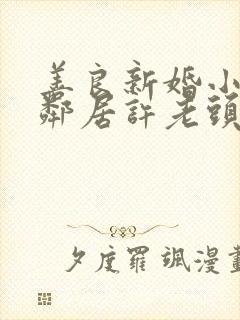 美良新婚小
鄰居許老頭
夕度羅颯漫畫